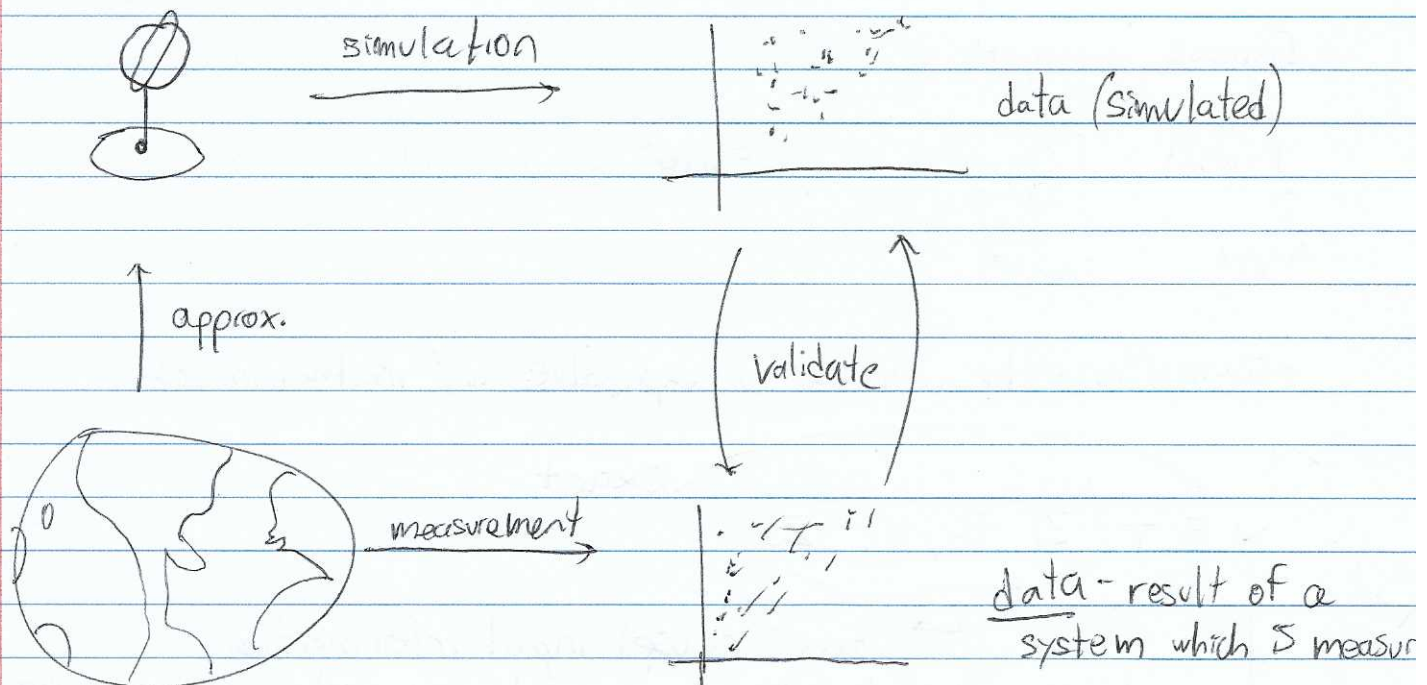 simulation
data (simulated)
approx.
validate
measurement
data - result of a
system which is measur